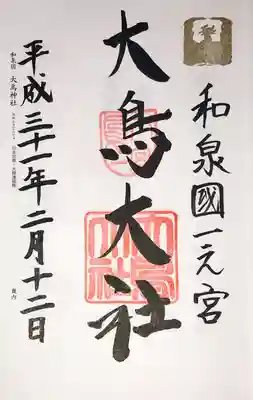 和泉國一之宮
大鳥大社
平成三十一年二月十二日
和泉国 大鳥神社